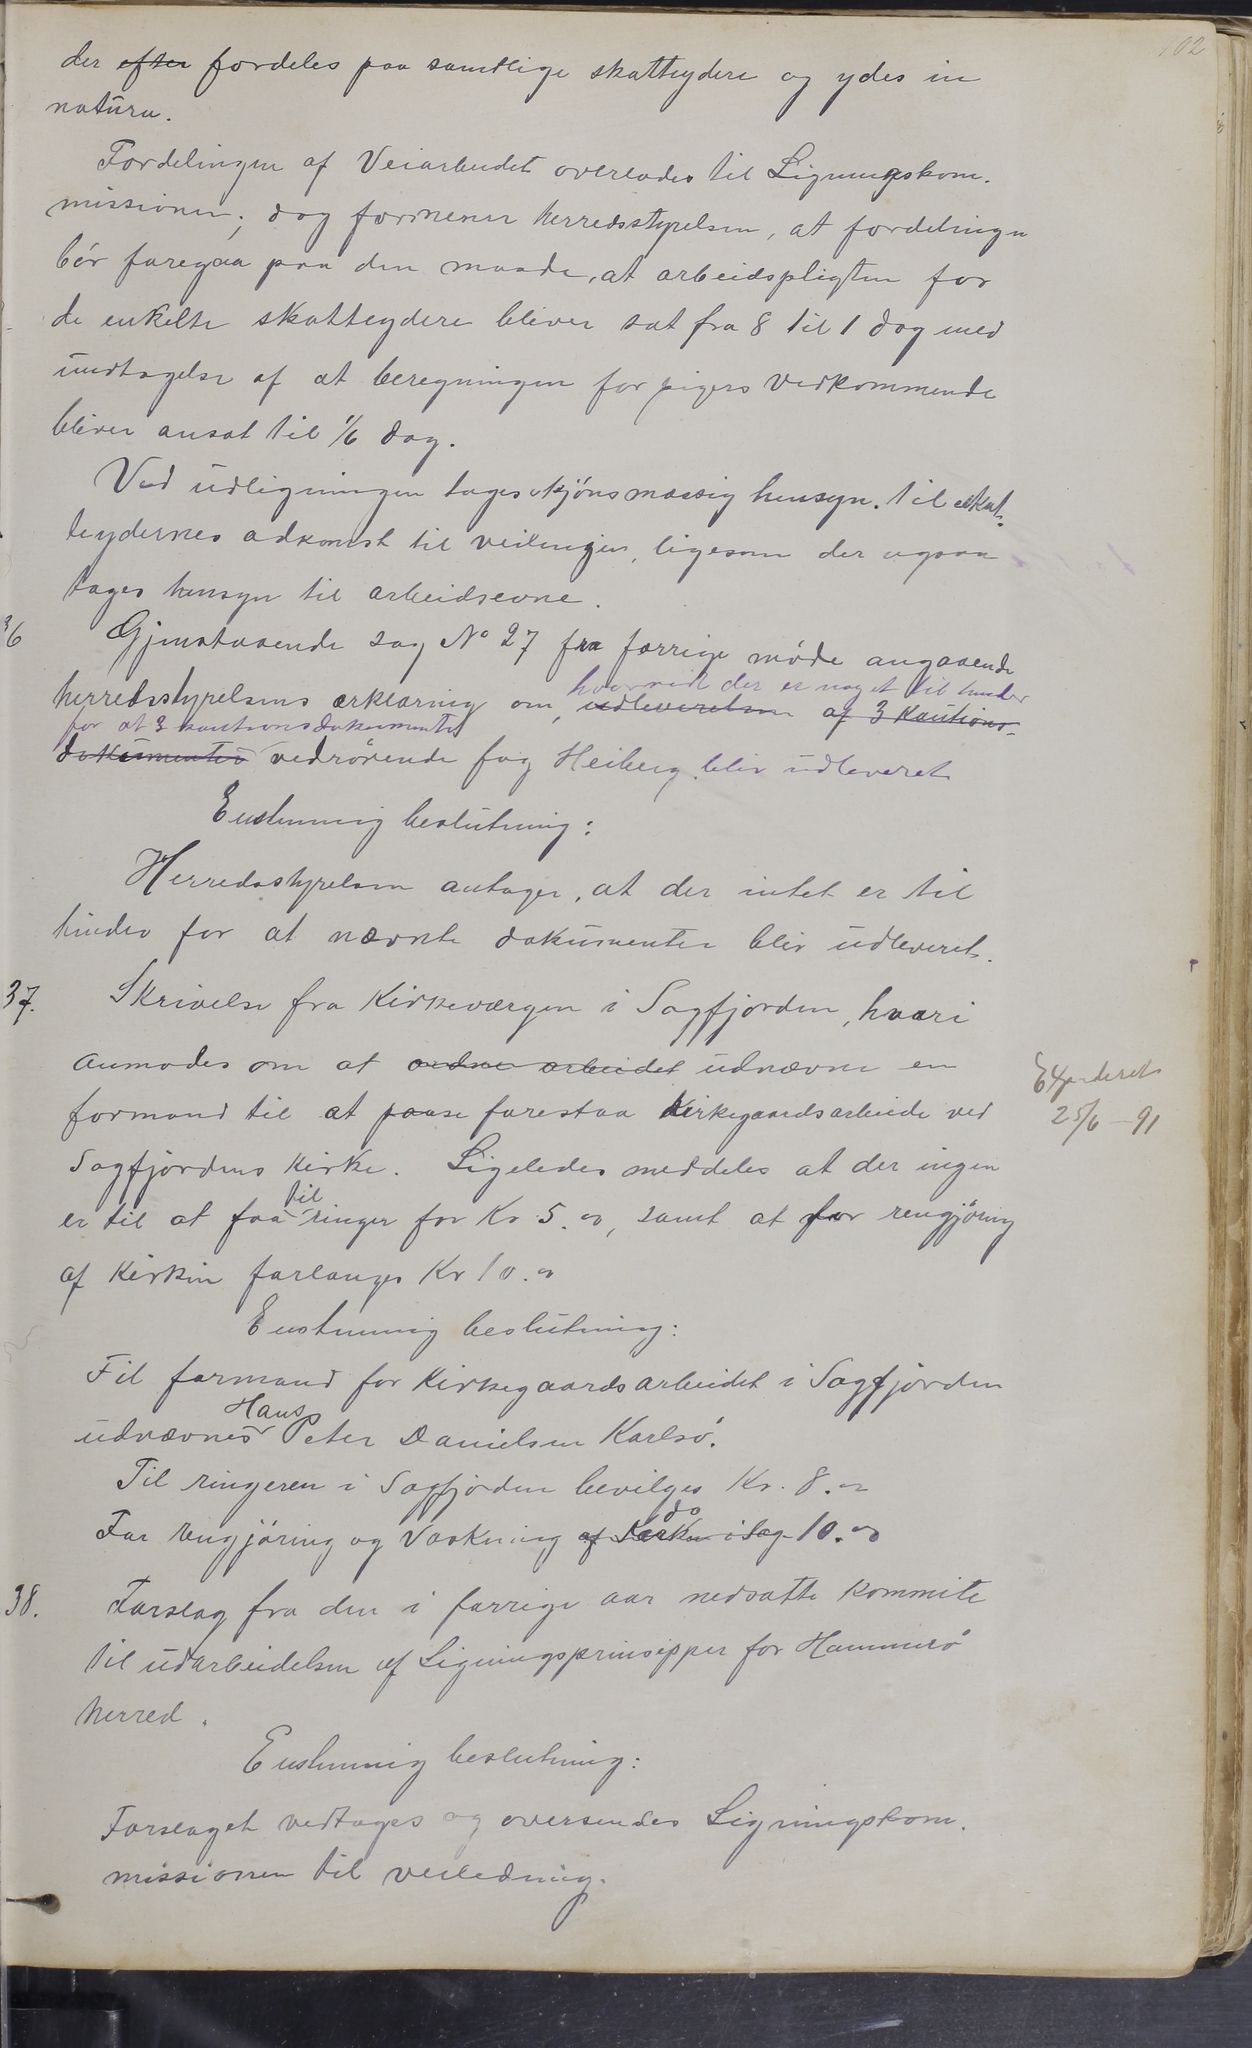 102
der efter fordeles paa samtlige skatteydere og ydes in
natura.
Fordelingen af Veiarbeidet overlades til Ligningskom-
missionen; dog formener herredsstyrelsen, at fordelingen
bör foregaa paa den maade, at arbeidspligten for
de enkelte skatteydere bliver sat fra 8 til 1 dag med
undtagelse af at beregningen for pigers vedkommende
bliver ansat til 1/6 dag.
Ved udligningen tages skjönsmæssig hensyn til skat-
teydernes adkomst til veilengen, ligesom der ogsaa
tages hensyn til arbeidsevne.
36 Gjenstaaende sag No 27 fra forrige møde angaaende
hvorvidt der er noget til hinder
herredsstyrelsens erklæring om, udleverelsen af 3 Kautions-
for at 3 kautionsdokumenter
dokumenter vedrörende fog Heiberg blir udleveret
Enstemmig beslutning:
Herredsstyrelsen antager, at der intet er til
hinder for at nævnte dokumenter blir udleveret.
37. Skrivelse fra Kirkeværgen i Sagfjorden, hvori
anmodes om at ordne arbeidet udnævne en
formand til at paase forestaa Kirkegaardsarbeide ved
Expederet
25/6 - 91
Sagfjordens Kirke. Ligeledes meddeles at der ingen
til
er til at faa ringer for Kr 5.00, samt at for rengjöring
af Kirken forlanges Kr 10.00
Enstemmig beslutning:
Til formand for Kirkegaardsarbeidet i Sagfjorden
Hans
udnævnes Peter Danielsen Karlsö.
Til ringeren i Sagfjorden bevilges Kr. 8.00
do
For rengjöring og Vaskning af Kirken i Sag- 10.00
38. Forslag fra den i forrige aar nedsatte kommite
til udarbeidelsen af Ligningsprinsipper for Hammerö
herred.
Enstemmig beslutning:
Forslaget vedtages og oversendes Ligningskom-
missionen til veiledning.